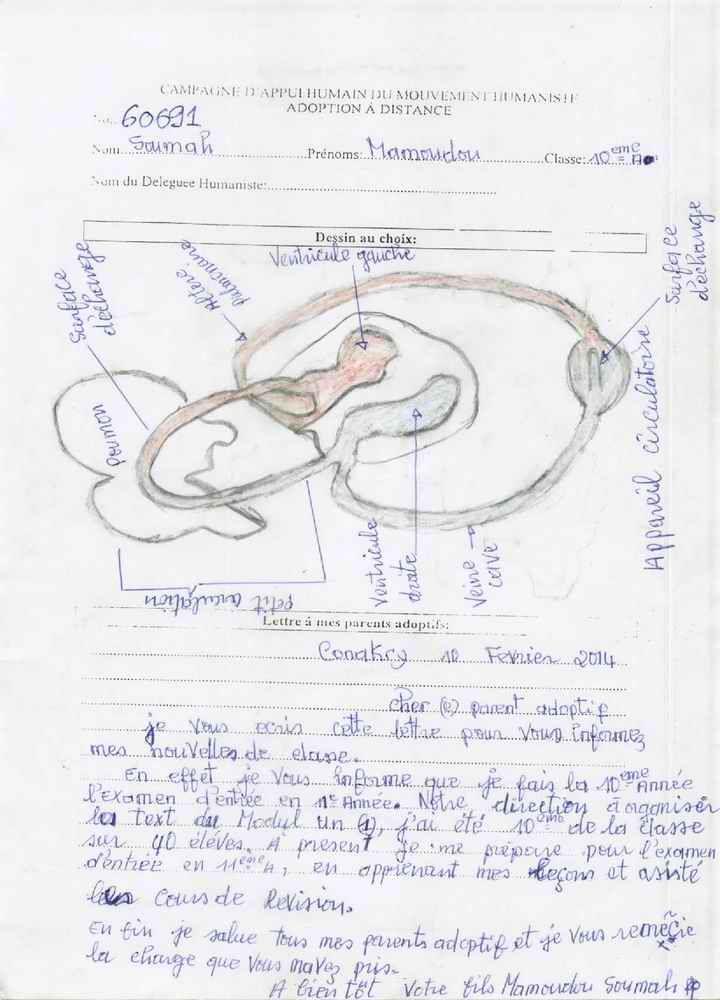 CAMPAGNE D'APPUI HUMAIN DU MOUVEMENT HUMANISTE
ADOPTION À DISTANCE
No: 60691
Nom: Soumah Prénoms: Mamoudou Classe: 10eme A
Nom du Deleguee Humaniste:
Dessin au choix:
Ventricule gauche
Surface d'échange
Artère pulmonaire
Surface d'échange
poumon
Appareil circulatoire
Ventricule droite
Veine cave
petit circulation
Lettre à mes parents adoptifs:
Conakry 10 Fevrier 2014
cher (e) parent adoptif
je vous ecris cette lettre pour vous informez
mes nouvelles de classe.
En effet je vous informe que je fais la 10eme Année
l'examen d'entrée en 11e Année. Notre direction à organiser
le text du Modul un (1), j'ai été 10eme de la classe
sur 40 éléves. A present je me prépare pour l'examen
d'entrée en 11eme A, en apprenant mes leçons et asisté
les Cours de Revision.
En fin je salue tous mes parents adoptif et je vous remecie
la charge que vous mavez pris.
A bien tôt Votre fils Mamoudou Soumah